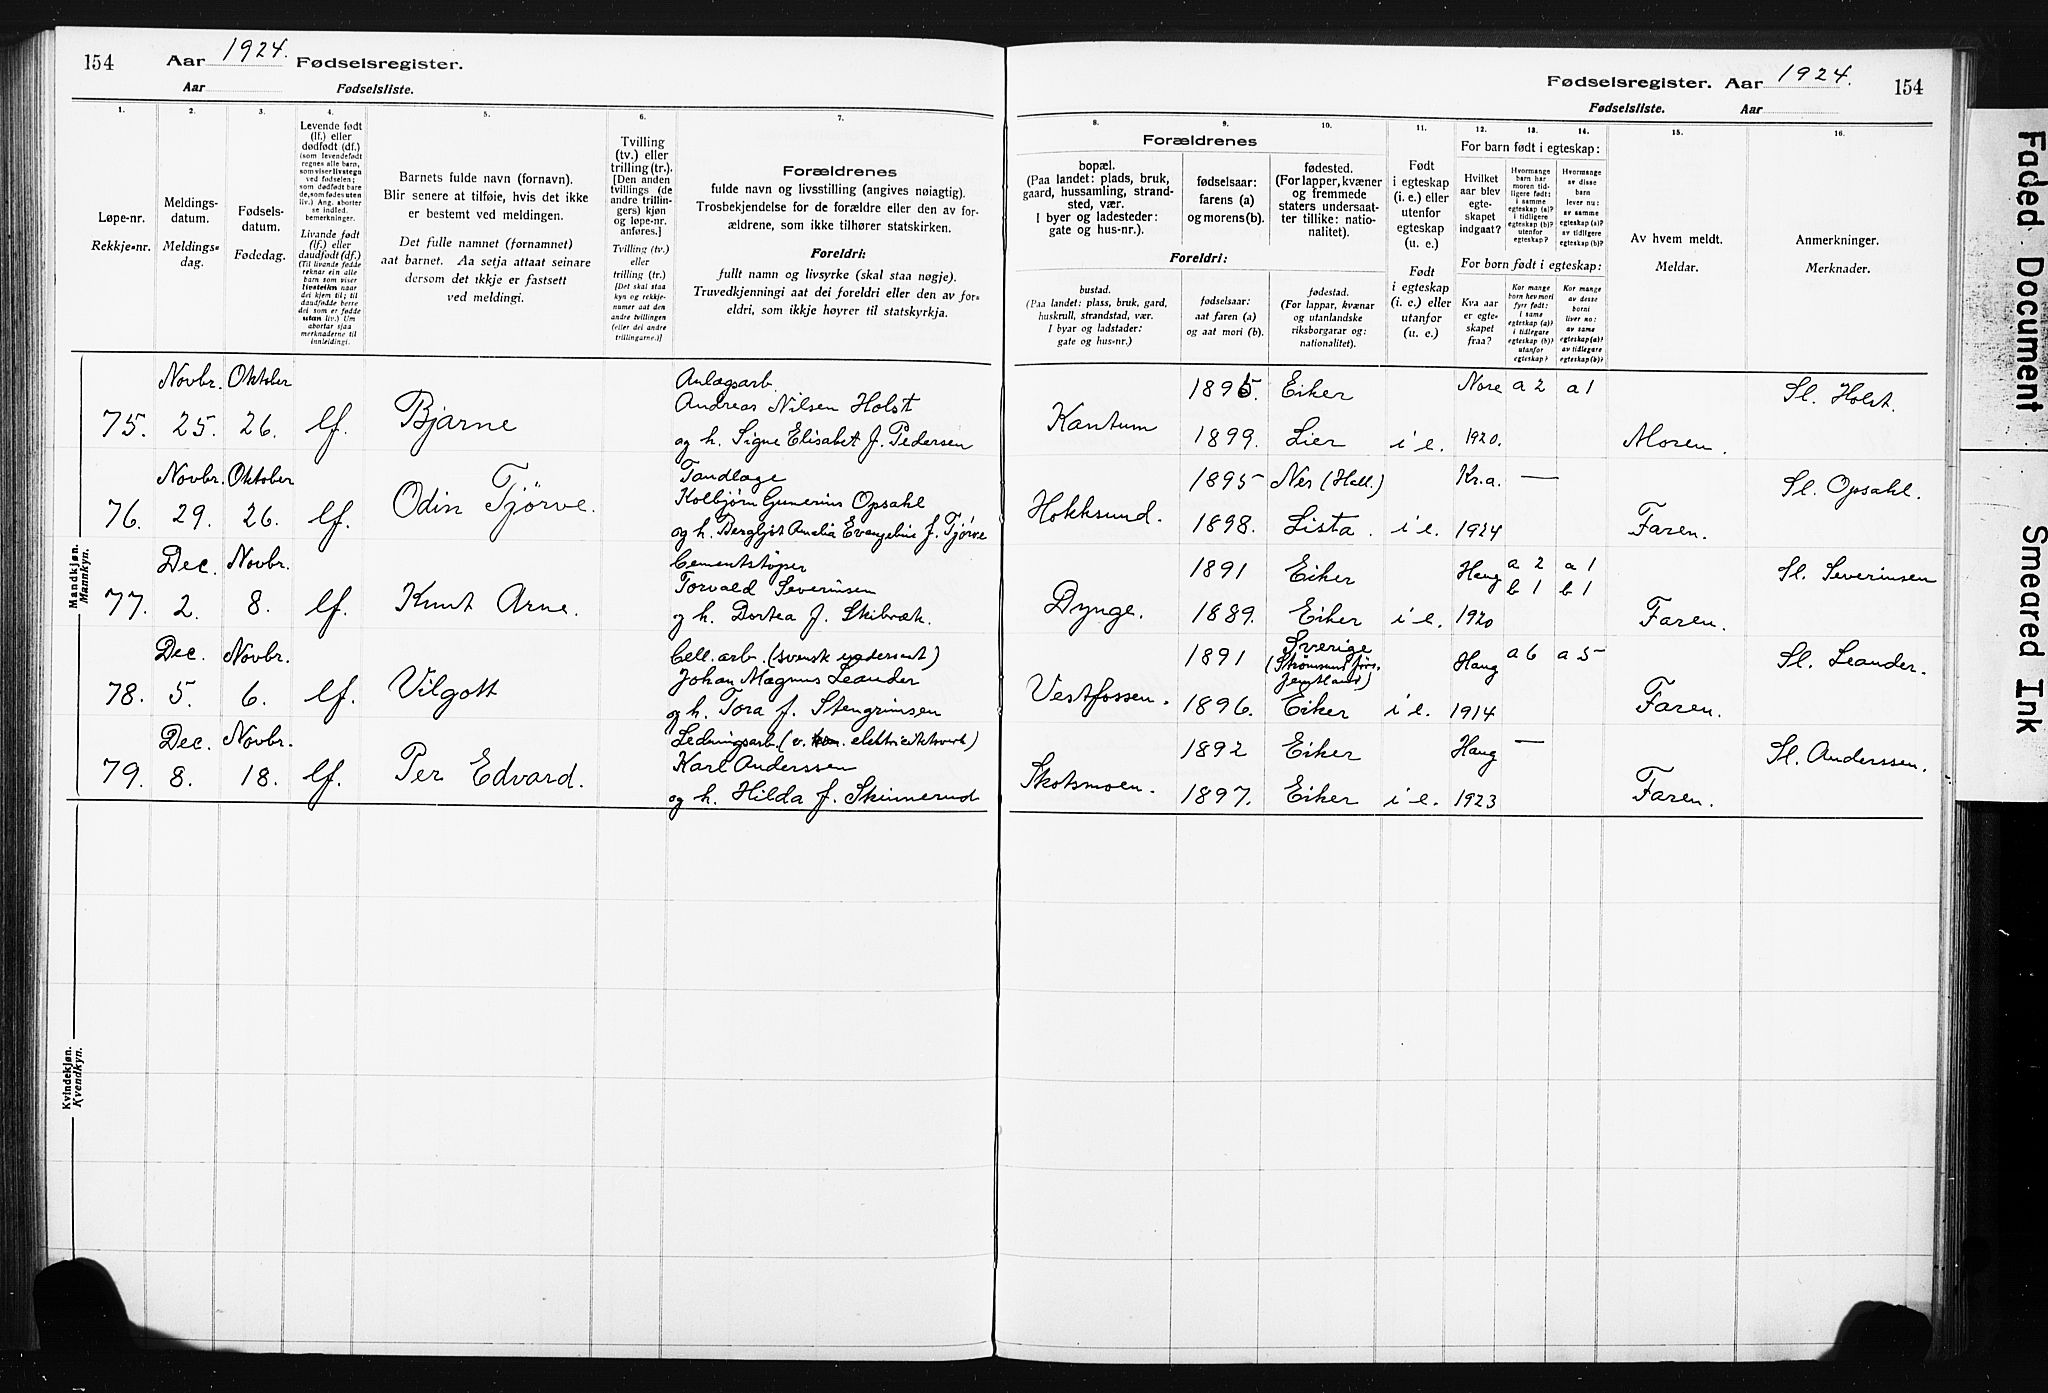 154
Aar 1924. Fødselsregister.
Aar Fødselsliste.
Fødselsregister. Aar 1924.
154
Fødselsliste. Aar
1.
Løpe-nr.
Rekkje-nr.
2.
Meldings-
datum.
Meldings-
dag.
3.
Fødsels-
datum.
Fødedag.
4.
Levende født
(lf.) eller
dødfødt (df.)
(som levendefødt
regnes alle barn,
som viser livstegn
ved fødselen;
som dødfødt bare
de, som fødes uten
liv.) Ang. aborter
se indled.
bemerkninger.
Livande født
(lf.) eller
daudfødt (df.)
(Til livande fødde
reknar ein alle
barn som viser
livsteikn naar
dei kjem til; til
daudfødde berre
dei som er fødde
utan liv.) Um
abortar sjaa
merknaderne til
innleidingi.
5.
Barnets fulde navn (fornavn).
Blir senere at tilføie, hvis det ikke
er bestemt ved meldingen.
Det fulle namnet (fornamnet)
aat barnet. Aa setja attaat seinare
dersom det ikkje er fastsett
ved meldingi.
6.
Tvilling
(tv.) eller
trilling (tr.).
[Den anden
tvillings (de
andre trillin-
gers) kjøn
og løpe-nr.
anføres.]
Tvilling (tv.)
eller
trilling (tr.)
[Det skal staa
kyn og rekkje-
numer aat den
andre tvillingen
(eller dei andre
trillingarne.)]
7.
Forældrenes
fulde navn og livsstilling (angives nøiagtig).
Trosbekjendelse for de forældre eller den av for-
ældrene, som ikke tilhører statskirken.
Foreldri:
fullt namn og livsyrke (skal staa nøgje).
Truvedkjenningi aat dei foreldri eller den av for-
eldri, som ikkje høyrer til statskyrkja.
Forældrenes
8.
bopæl.
(Paa landet: plads, bruk,
gaard, hussamling, strand-
sted, vær.
I byer og ladesteder:
gate og hus-nr.).
9.
fødselsaar:
farens (a)
og morens (b).
10.
fødested.
(For lapper, kvæner
og fremmede
staters undersaat-
ter tillike: natio-
nalitet).
Foreldri:
bustad.
(Paa landet: plass, bruk, gard,
huskrull, strandstad, vær.
I byar og ladstader:
gate og hus-nr.)
fødselsaar:
aat faren (a)
og aat mori (b).
fødestad.
(For lappar, kvænar
og utanlandske
riksborgarar og:
nationalitet).
11.
Født
i egteskap
(i. e.) eller
utenfor
egteskap
(u. e.)
Født
i egteskap
(i. e.) eller
utanfor
(u. e.)
12. 13. 14.
For barn født i egteskap:
Hvilket
aar blev
egte-
skapet
indgaat?
Hvormange
barn har
moren tid-
ligere født:
i samme
egteskap (a)?
i tidligere
egteskap (b)?
utenfor
egteskap?
Hvormange
av disse
barn
lever nu:
av samme
egteskap (a)?
av tidligere
egteskap (b)?
For born født i egteskap:
Kva aar
er egte-
skapet
fraa?
Kor mange
born hev mori
fyrr født:
i same
egteskap (a)?
i tidlegare
egteskap (b)?
utanfor
egteskap?
Kor mange
av desse
borni
liver no:
av same
egteskap (a)?
av tidlegare
egteskap (b)?
15.
Av hvem meldt.
Meldar.
16.
Anmerkninger.
Merknader.
Mandkjøn.
Mannkyn.
75. Novbr. 25. Oktober 26. lf. Bjarne
Anlægsarb.
Andreas Nilsen Holst
og h. Signe Elisabet f. Pedersen
Kantum 1895. Eiker Nore a 2 a 1 Sl. Holst.
1899. Lier i e. 1920. Moren.
76. Novbr. 29. Oktober 26. lf. Odin Tjørve.
Tandlæge
Kolbjørn Gunerius Opsahl
og h. Bergljot Amalia Evangeline f. Tjørve
Hokksund. 1895 Nes (Hall.) Kr.a. — Sl. Opsahl.
1898. Lista. i e. 1924 Faren.
77. Dec. 2. Novbr. 8. lf. Knut Arne.
Cementstøper
Torvald Severinsen
og h. Dortea f. Skibræk.
Dynge. 1891 Eiker Haug a 2 b 1 a 1 b 1 Sl. Severinsen
1889. Eiker i e. 1920 Faren.
78. Dec. 5. Novbr. 6. lf. Vilgott
Cell. arb. (svensk undersaat)
Johan Magnus Leander
og h. Tora f. Stengrimsen
Vestfossen. 1891 Sverige
(Strømsund førs.
Jemtland) Haug a 6 a 5 Sl. Leander.
1896. Eiker i e. 1914 Faren.
79. Dec. 8. Novbr. 18. lf. Per Edvard.
Ledningsarb. (v. kom. elektricitetsverk)
Karl Anderssen
og h. Hilda f. Skinnerud
Skotsmoen. 1892 Eiker Haug — Sl. Anderssen.
1897. Eiker i e. 1923 Faren.
Kvindekjøn.
Kvendkyn.
Faded Document
Smeared Ink